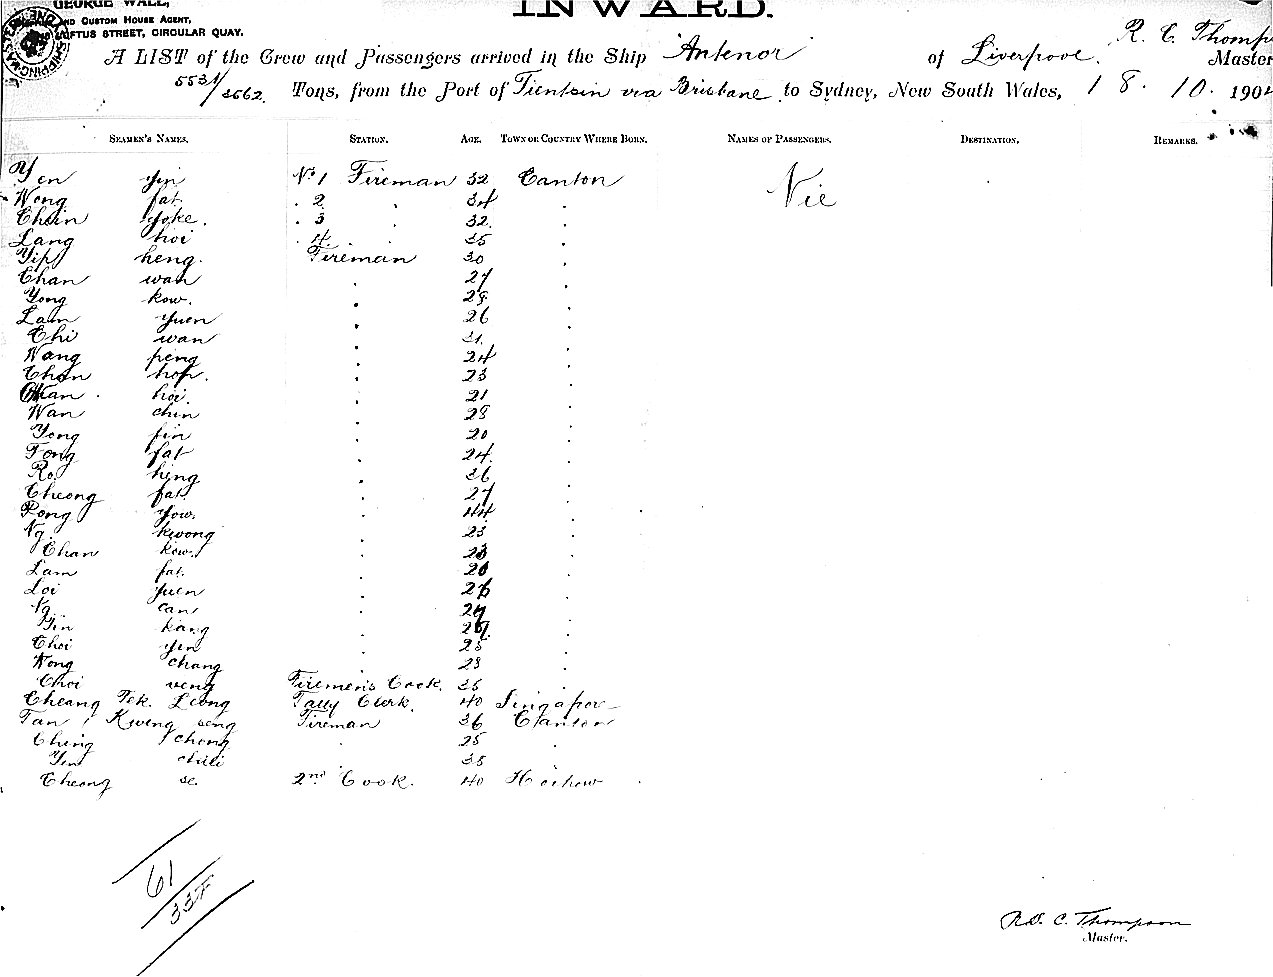 INWARD.
GEORGE WALL,
AND CUSTOM HOUSE AGENT,
LOFTUS STREET, CIRCULAR QUAY.
R. C. Thomp
A LIST of the Crew and Passengers arrived in the Ship Antenor of Liverpool, Master
5531/3562 Tons, from the Port of Tientsin via Brisbane to Sydney, New South Wales, 18. 10. 190
SEAMEN'S NAMES. STATION. AGE. TOWN OR COUNTRY WHERE BORN. NAMES OF PASSENGERS. DESTINATION. REMARKS.
Yen yin No 1 Fireman 32 Canton Nil
Wong fat. . 2 . 34 .
Chun yoke. . 3 . 32. .
Lang hoi . 4. . 35 .
Yip heng. Fireman 30 .
Chan wan . 27 .
Yong kow. . 28 .
Lam yuen . 26 .
Chi wan . 31. .
Wang peng . 24 .
Chan hop. . 23 .
Chan. hoi. . 21 .
Wan chin . 28 .
Yong fin . 20 .
Tong fat . 24. .
Ro heng . 36 .
Cheong fat. . 27 .
Pong yow. . 44 .
Ng. kwong . 23 .
Chan kow. . 23 .
Lam fat. . .
Loi yuen . .
Ng. can . .
Yin kang . .
Choi yin . 25 .
Wong chang . 28 .
Choi veng Firemen's Cook. 35 .
Cheang Tek. Leong Tally Clerk. 40 Singapor
Tan Kwing seng Fireman 36 Canton
Ching chong . 25 .
Yin . 35
Cheong se. 2nd Cook. 40 Hoihow .
61
Rd. C. Thompson
Master.